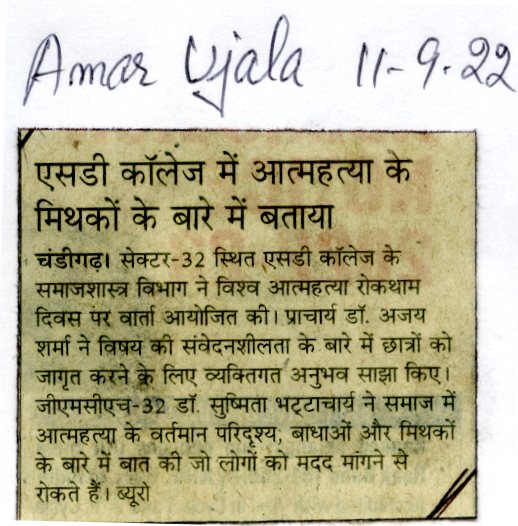 Amar Ujala 11-9-22
एसडी कॉलेज में आत्महत्या के
मिथकों के बारे में बताया
चंडीगढ़। सेक्टर-32 स्थित एसडी कॉलेज के
समाजशास्त्र विभाग ने विश्व आत्महत्या रोकथाम
दिवस पर वार्ता आयोजित की। प्राचार्य डॉ. अजय
शर्मा ने विषय की संवेदनशीलता के बारे में छात्रों को
जागृत करने के लिए व्यक्तिगत अनुभव साझा किए।
जीएमसीएच-32 डॉ. सुष्मिता भट्टाचार्य ने समाज में
आत्महत्या के वर्तमान परिदृश्य, बाधाओं और मिथकों
के बारे में बात की जो लोगों को मदद मांगने से
रोकते हैं। ब्यूरो